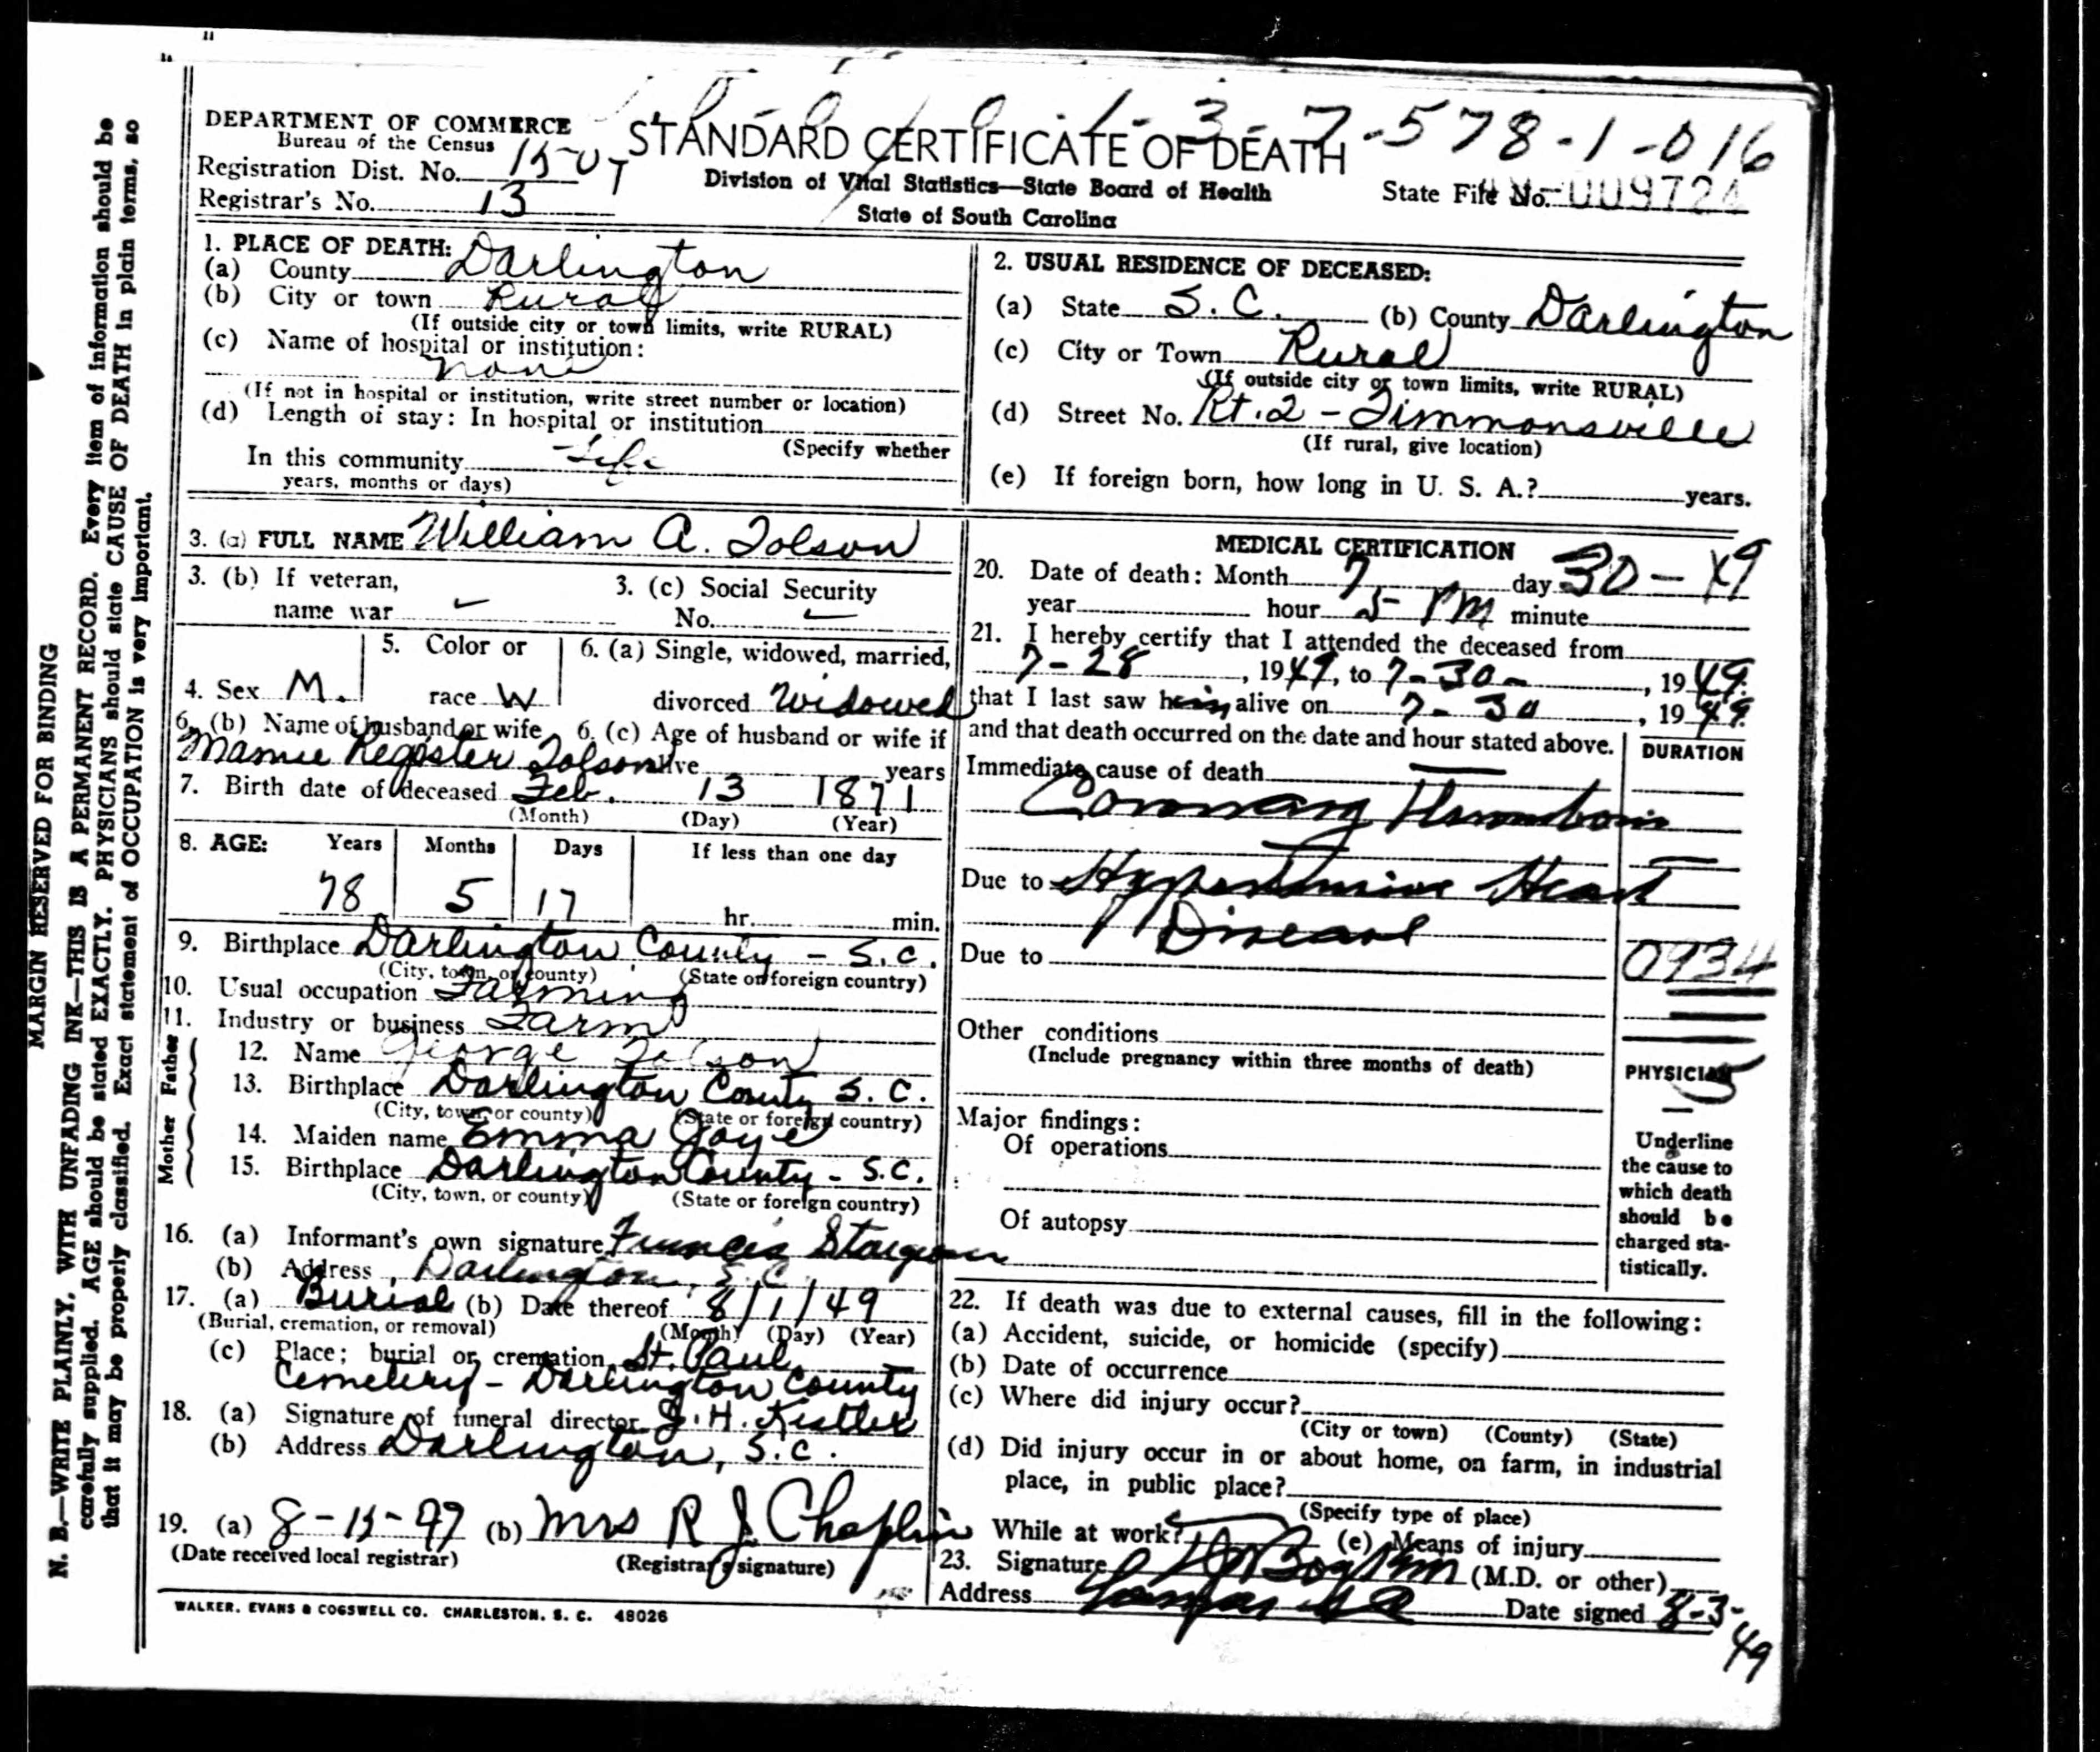 1-3-7-578-1-016
DEPARTMENT OF COMMERCE
Bureau of the Census
STANDARD CERTIFICATE OF DEATH
Registration Dist. No.
Division of Vital Statistics—State Board of Health
State File No. 009724
Registrar's No. 13
State of South Carolina
1. PLACE OF DEATH:
(a) County Darlington
(b) City or town Rural
(If outside city or town limits, write RURAL)
(c) Name of hospital or institution:
none
(If not in hospital or institution, write street number or location)
(d) Length of stay: In hospital or institution
(Specify whether
In this community Life
years, months or days)
2. USUAL RESIDENCE OF DECEASED:
(a) State S. C. (b) County Darlington
(c) City or Town Rural
(If outside city or town limits, write RURAL)
(d) Street No. Rt. 2 - Timmonsville
(If rural, give location)
(e) If foreign born, how long in U. S. A.? years.
3. (a) FULL NAME William A. Tolson
3. (b) If veteran,
name war
3. (c) Social Security
No.
4. Sex M.
5. Color or
race W
6. (a) Single, widowed, married,
divorced Widowed
6. (b) Name of husband or wife
Mamie Register Tolson
6. (c) Age of husband or wife if
alive years
7. Birth date of deceased Feb. 13 1871
(Month) (Day) (Year)
8. AGE: Years Months Days If less than one day
78 5 17 hr. min.
9. Birthplace Darlington County - S.C.
(City, town, or county) (State or foreign country)
10. Usual occupation Farming
11. Industry or business Farm
Father
12. Name George Tolson
13. Birthplace Darlington County S. C.
(City, town, or county) (State or foreign country)
Mother
14. Maiden name Emma Joye
15. Birthplace Darlington County - S.C.
(City, town, or county) (State or foreign country)
16. (a) Informant's own signature Francis
(b) Address Darlington, S.C.
17. (a) Burial (b) Date thereof 8/1/49
(Burial, cremation, or removal) (Month) (Day) (Year)
(c) Place; burial or cremation St. Paul
Cemetery - Darlington County
18. (a) Signature of funeral director J. H. Kistler
(b) Address Darlington, S.C.
19. (a) (b) Mrs R J Chaplin
(Date received local registrar) (Registrar's signature)
MEDICAL CERTIFICATION
20. Date of death: Month 7 day 30 - 49
year hour 5 PM minute
21. I hereby certify that I attended the deceased from
7-28, 1949, to 7-30-, 1949.
that I last saw him alive on 7-30, 1949.
and that death occurred on the date and hour stated above.
DURATION
Immediate cause of death
Coronary Thrombosis
Due to Hypertensive Heart
Disease
Due to
0934
Other conditions
(Include pregnancy within three months of death)
PHYSICIAN
Major findings:
Of operations
Of autopsy
Underline
the cause to
which death
should be
charged sta-
tistically.
22. If death was due to external causes, fill in the following:
(a) Accident, suicide, or homicide (specify)
(b) Date of occurrence
(c) Where did injury occur?
(City or town) (County) (State)
(d) Did injury occur in or about home, on farm, in industrial
place, in public place?
(Specify type of place)
While at work? (e) Means of injury
23. Signature (M.D. or other)
Address Date signed 8-3-
49
WALKER, EVANS & COGSWELL CO. CHARLESTON, S. C. 48026
MARGIN RESERVED FOR BINDING
N. B.—WRITE PLAINLY, WITH UNFADING INK—THIS IS A PERMANENT RECORD. Every item of information should be
carefully supplied. AGE should be stated EXACTLY. PHYSICIANS should state CAUSE OF DEATH in plain terms, so
that it may be properly classified. Exact statement of OCCUPATION is very important.